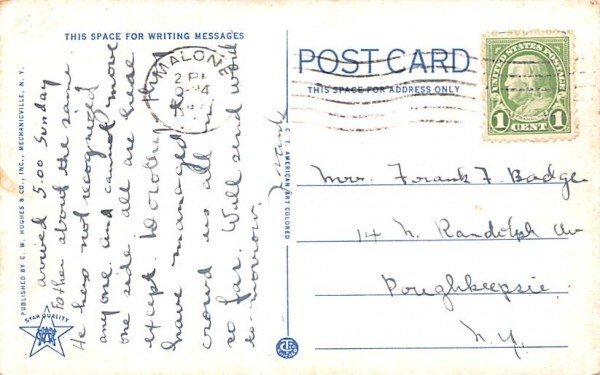 THIS SPACE FOR WRITING MESSAGES
POST CARD
THIS SPACE FOR ADDRESS ONLY
MALONE
2 PM
UNITED STATES POSTAGE
1 CENT 1
arrived 5.00 Sunday
Father about the same
He has not recognized
any one and cannot move
one side. all are here
except Dorothy
have managed to
crowd us all in
so far. Will send word
to-morrow.
Frank
Mrs. Frank F. Badge
14 N. Randolph Av
Poughkeepsie
N.Y.
PUBLISHED BY C. W. HUGHES & CO., INC., MECHANICVILLE, N. Y.
C. T. AMERICAN ART COLORED
STAR QUALITY